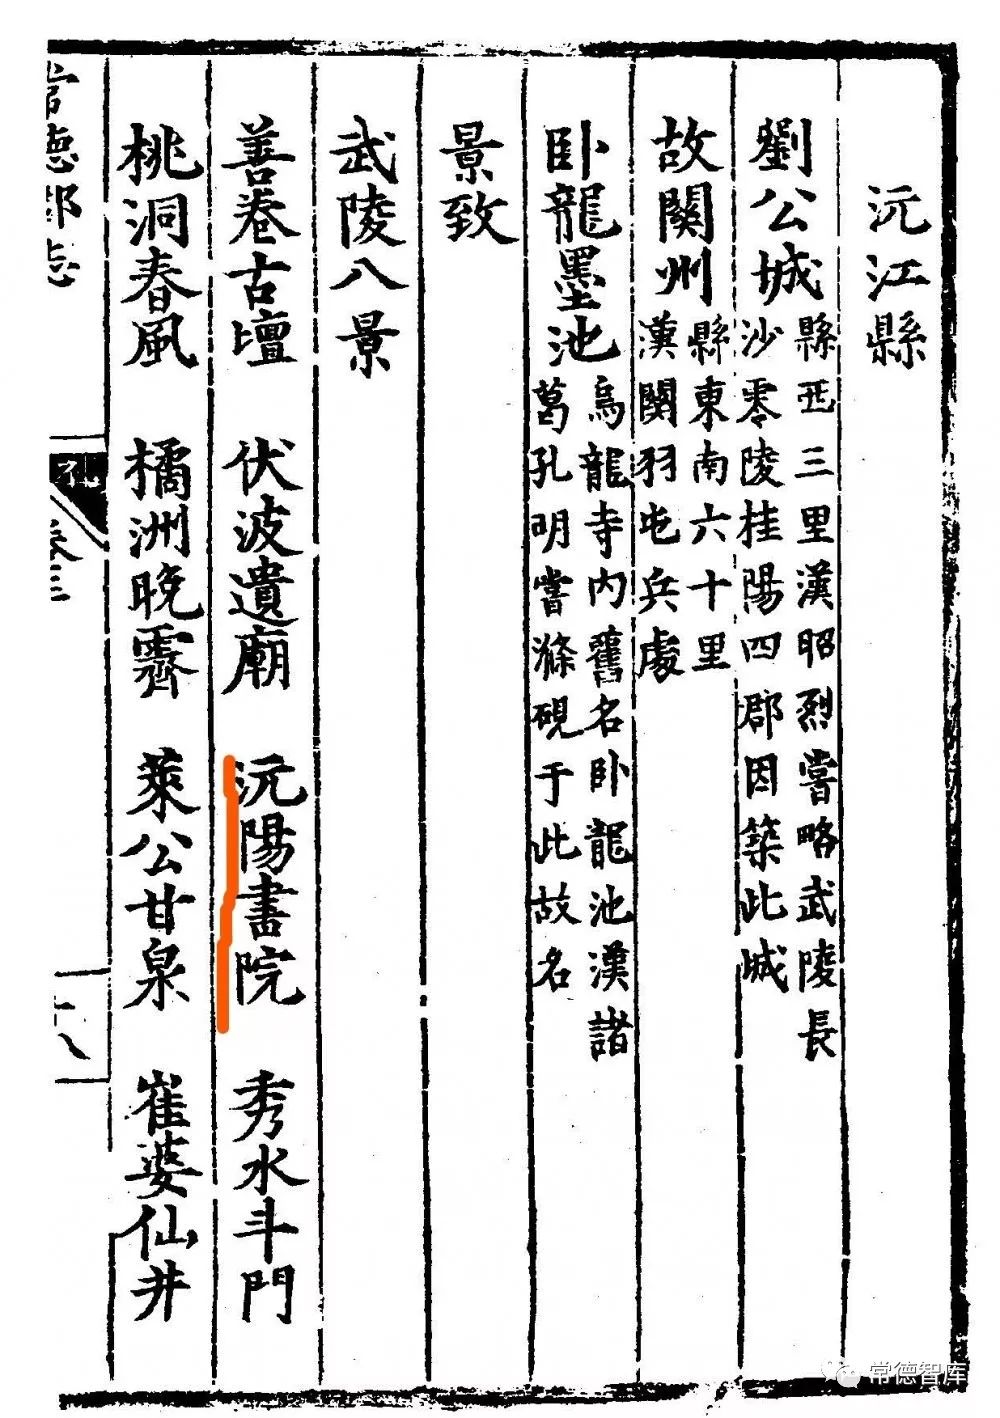 沅江縣
劉公城 縣西三里漢昭烈嘗略武陵長
沙零陵桂陽四郡因築此城
故關州 縣東南六十里
漢關羽屯兵處
卧龍墨池 烏龍寺内舊名卧龍池漢諸
葛孔明嘗滌硯于此故名
景致
武陵八景
善卷古壇 伏波遺廟 沅陽書院 秀水斗門
桃洞春風 橘洲晚霽 萊公甘泉 崔婆仙井
常德郡志 卷三 十八
常德智库